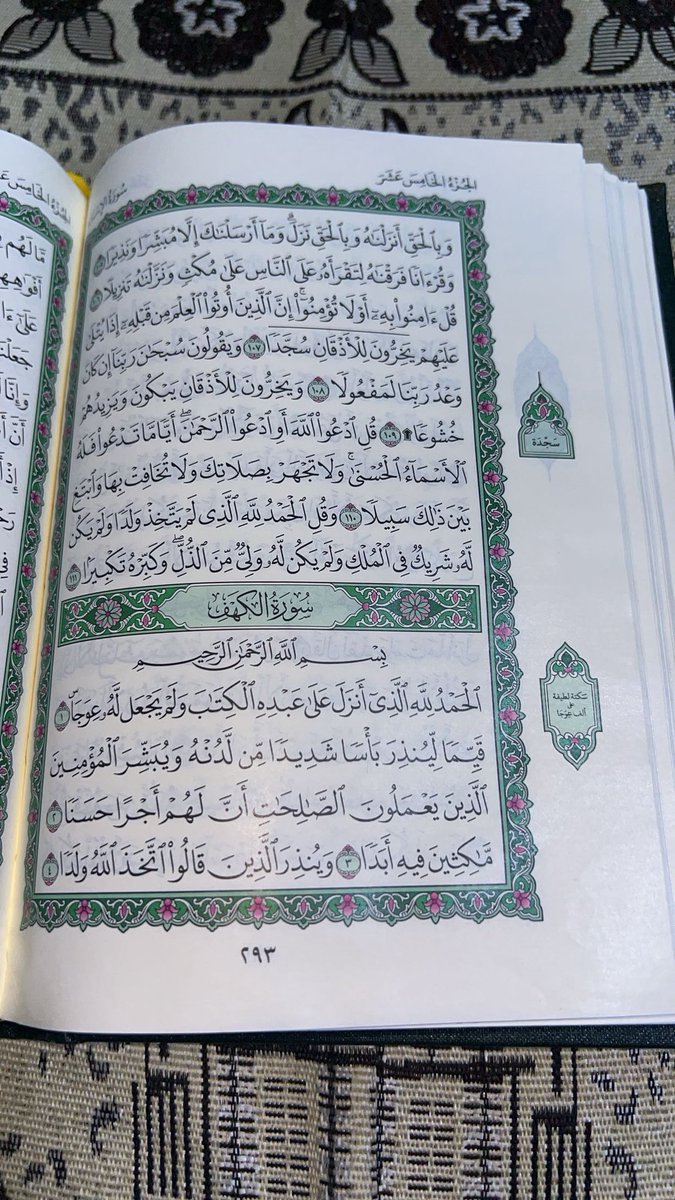 الجُزْءُ الخَامِسَ عَشَرَ
سُورَةُ الإِ
وَبِٱلْحَقِّ أَنزَلْنَٰهُ وَبِٱلْحَقِّ نَزَلَۗ وَمَآ أَرْسَلْنَٰكَ إِلَّا مُبَشِّرًا وَنَذِيرًا ١٠٥
وَقُرْءَانًا فَرَقْنَٰهُ لِتَقْرَأَهُۥ عَلَى ٱلنَّاسِ عَلَىٰ مُكْثٍ وَنَزَّلْنَٰهُ تَنزِيلًا ١٠٦
قُلْ ءَامِنُوا۟ بِهِۦٓ أَوْ لَا تُؤْمِنُوٓا۟ۚ إِنَّ ٱلَّذِينَ أُوتُوا۟ ٱلْعِلْمَ مِن قَبْلِهِۦٓ إِذَا يُتْلَىٰ
عَلَيْهِمْ يَخِرُّونَ لِلْأَذْقَانِ سُجَّدًا ١٠٧ وَيَقُولُونَ سُبْحَٰنَ رَبِّنَآ إِن كَانَ
وَعْدُ رَبِّنَا لَمَفْعُولًا ١٠٨ وَيَخِرُّونَ لِلْأَذْقَانِ يَبْكُونَ وَيَزِيدُهُمْ
خُشُوعًا۩ ١٠٩ قُلِ ٱدْعُوا۟ ٱللَّهَ أَوِ ٱدْعُوا۟ ٱلرَّحْمَٰنَۖ أَيًّا مَّا تَدْعُوا۟ فَلَهُ
ٱلْأَسْمَآءُ ٱلْحُسْنَىٰۚ وَلَا تَجْهَرْ بِصَلَاتِكَ وَلَا تُخَافِتْ بِهَا وَٱبْتَغِ
بَيْنَ ذَٰلِكَ سَبِيلًا ١١٠ وَقُلِ ٱلْحَمْدُ لِلَّهِ ٱلَّذِى لَمْ يَتَّخِذْ وَلَدًا وَلَمْ يَكُن
لَّهُۥ شَرِيكٌ فِى ٱلْمُلْكِ وَلَمْ يَكُن لَّهُۥ وَلِىٌّ مِّنَ ٱلذُّلِّۖ وَكَبِّرْهُ تَكْبِيرًۢا ١١١
سُورَةُ الكَهْفِ
بِسْمِ ٱللَّهِ ٱلرَّحْمَٰنِ ٱلرَّحِيمِ
ٱلْحَمْدُ لِلَّهِ ٱلَّذِىٓ أَنزَلَ عَلَىٰ عَبْدِهِ ٱلْكِتَٰبَ وَلَمْ يَجْعَل لَّهُۥ عِوَجَاۜ ١
قَيِّمًا لِّيُنذِرَ بَأْسًا شَدِيدًا مِّن لَّدُنْهُ وَيُبَشِّرَ ٱلْمُؤْمِنِينَ
ٱلَّذِينَ يَعْمَلُونَ ٱلصَّٰلِحَٰتِ أَنَّ لَهُمْ أَجْرًا حَسَنًا ٢
مَّٰكِثِينَ فِيهِ أَبَدًا ٣ وَيُنذِرَ ٱلَّذِينَ قَالُوا۟ ٱتَّخَذَ ٱللَّهُ وَلَدًا ٤
٢٩٣
سَجْدَة
سكتة لطيفة
على
ألف عوجا
الجُزْءُ الخَامِسَ